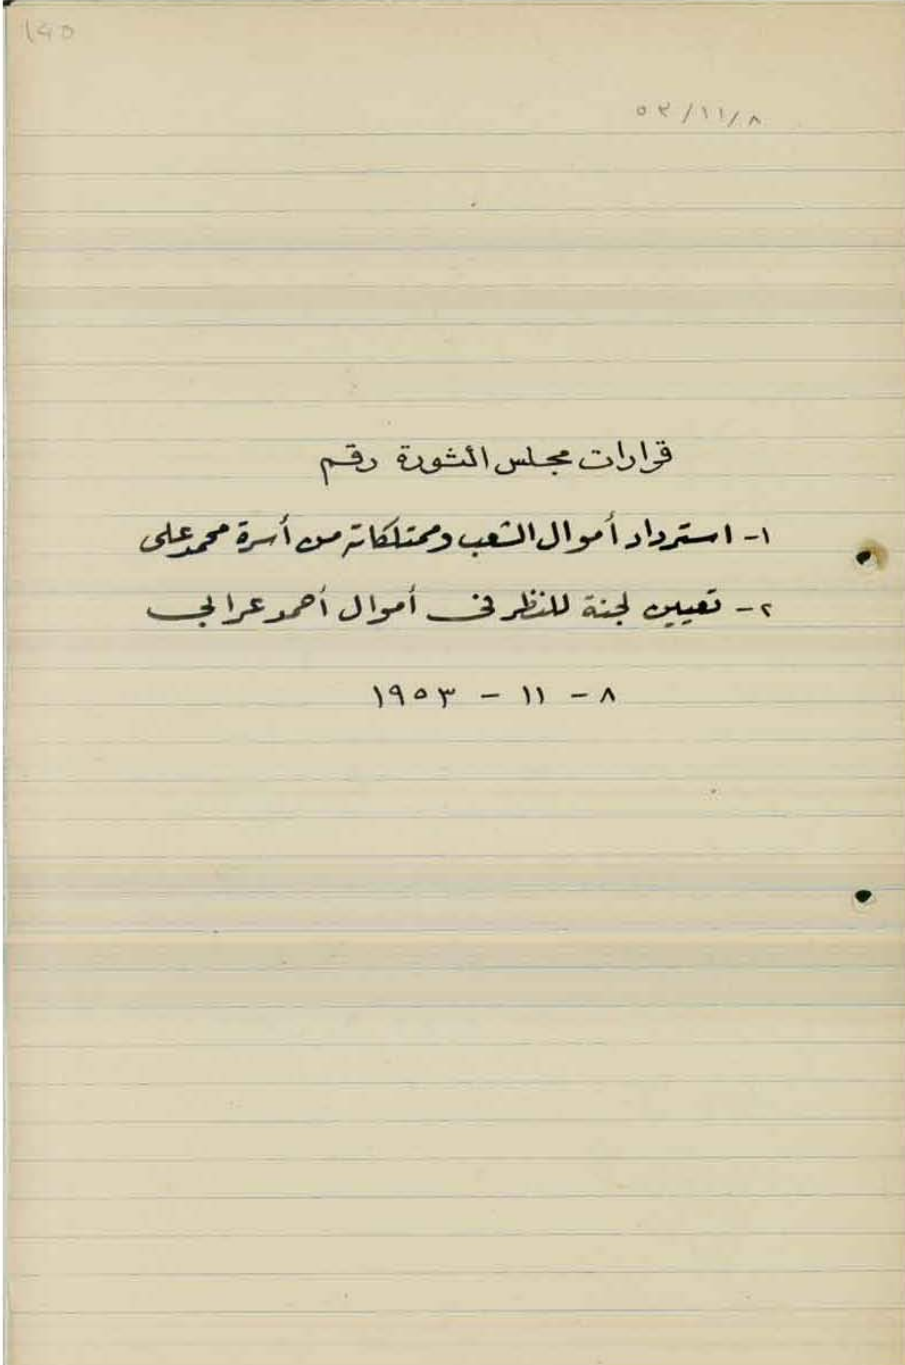 ١٤٥
٥٣/١١/٨
قرارات مجلس الثورة رقم
١- استرداد أموال الشعب وممتلكاته من أسرة محمد على
٢- تعيين لجنة للنظر فى أموال أحمد عرابى
٨ - ١١ - ١٩٥٣